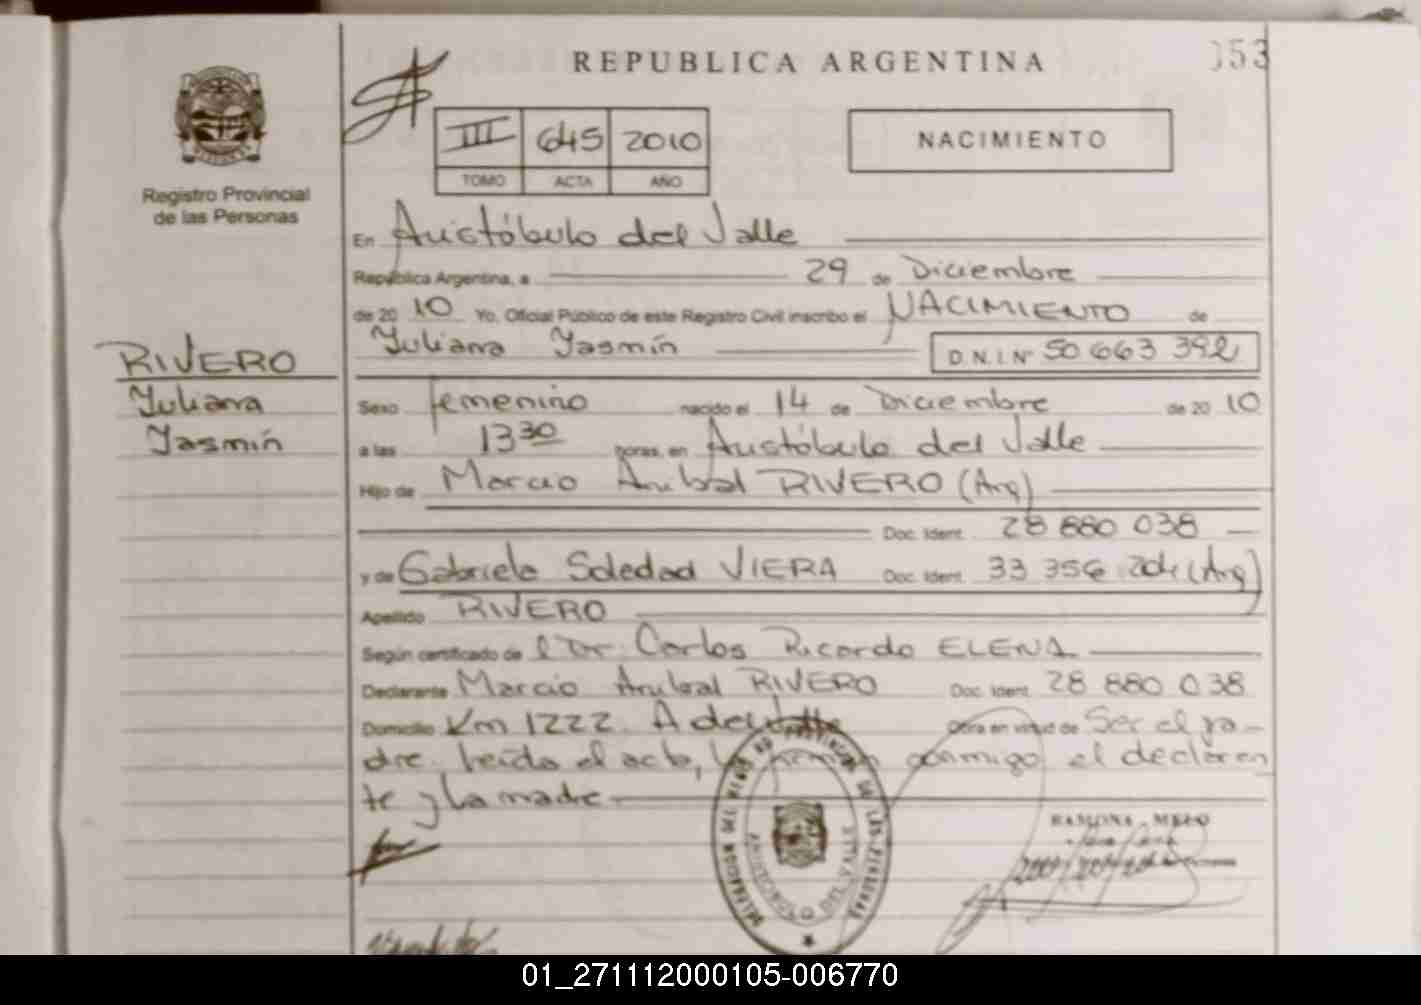 REPUBLICA ARGENTINA
053
Registro Provincial
de las Personas
III 645 2010
TOMO ACTA AÑO
NACIMIENTO
En Aristóbulo del Valle
República Argentina, a 29 de Diciembre
de 2010 Yo, Oficial Público de este Registro Civil inscribo el NACIMIENTO de
Yuliana Yasmín D.N.I.Nº 50 663 392
RIVERO
Yuliana
Yasmín
Sexo femenino nacido el 14 de Diciembre de 2010
a las 13 30 horas, en Aristóbulo del Valle
Hijo de Marcio Anibal RIVERO (Arg)
Doc. Ident. 28 880 038
y de Gabriela Soledad VIERA Doc. Ident. 33 356 204 (Arg)
Apellido RIVERO
Según certificado de l Dr. Carlos Ricardo ELENA
Declarante Marcio Anibal RIVERO Doc. Ident. 28 880 038
Domicilio Km 1222. A del Valle Obra en virtud de Ser el pa-
dre. Leída el acta, la firman conmigo el declaran
te y la madre
DELEGACION DEL REGISTRO PROVINCIAL DE LAS PERSONAS
ARISTOBULO DEL VALLE
RAMONA MELO
01_271112000105-006770